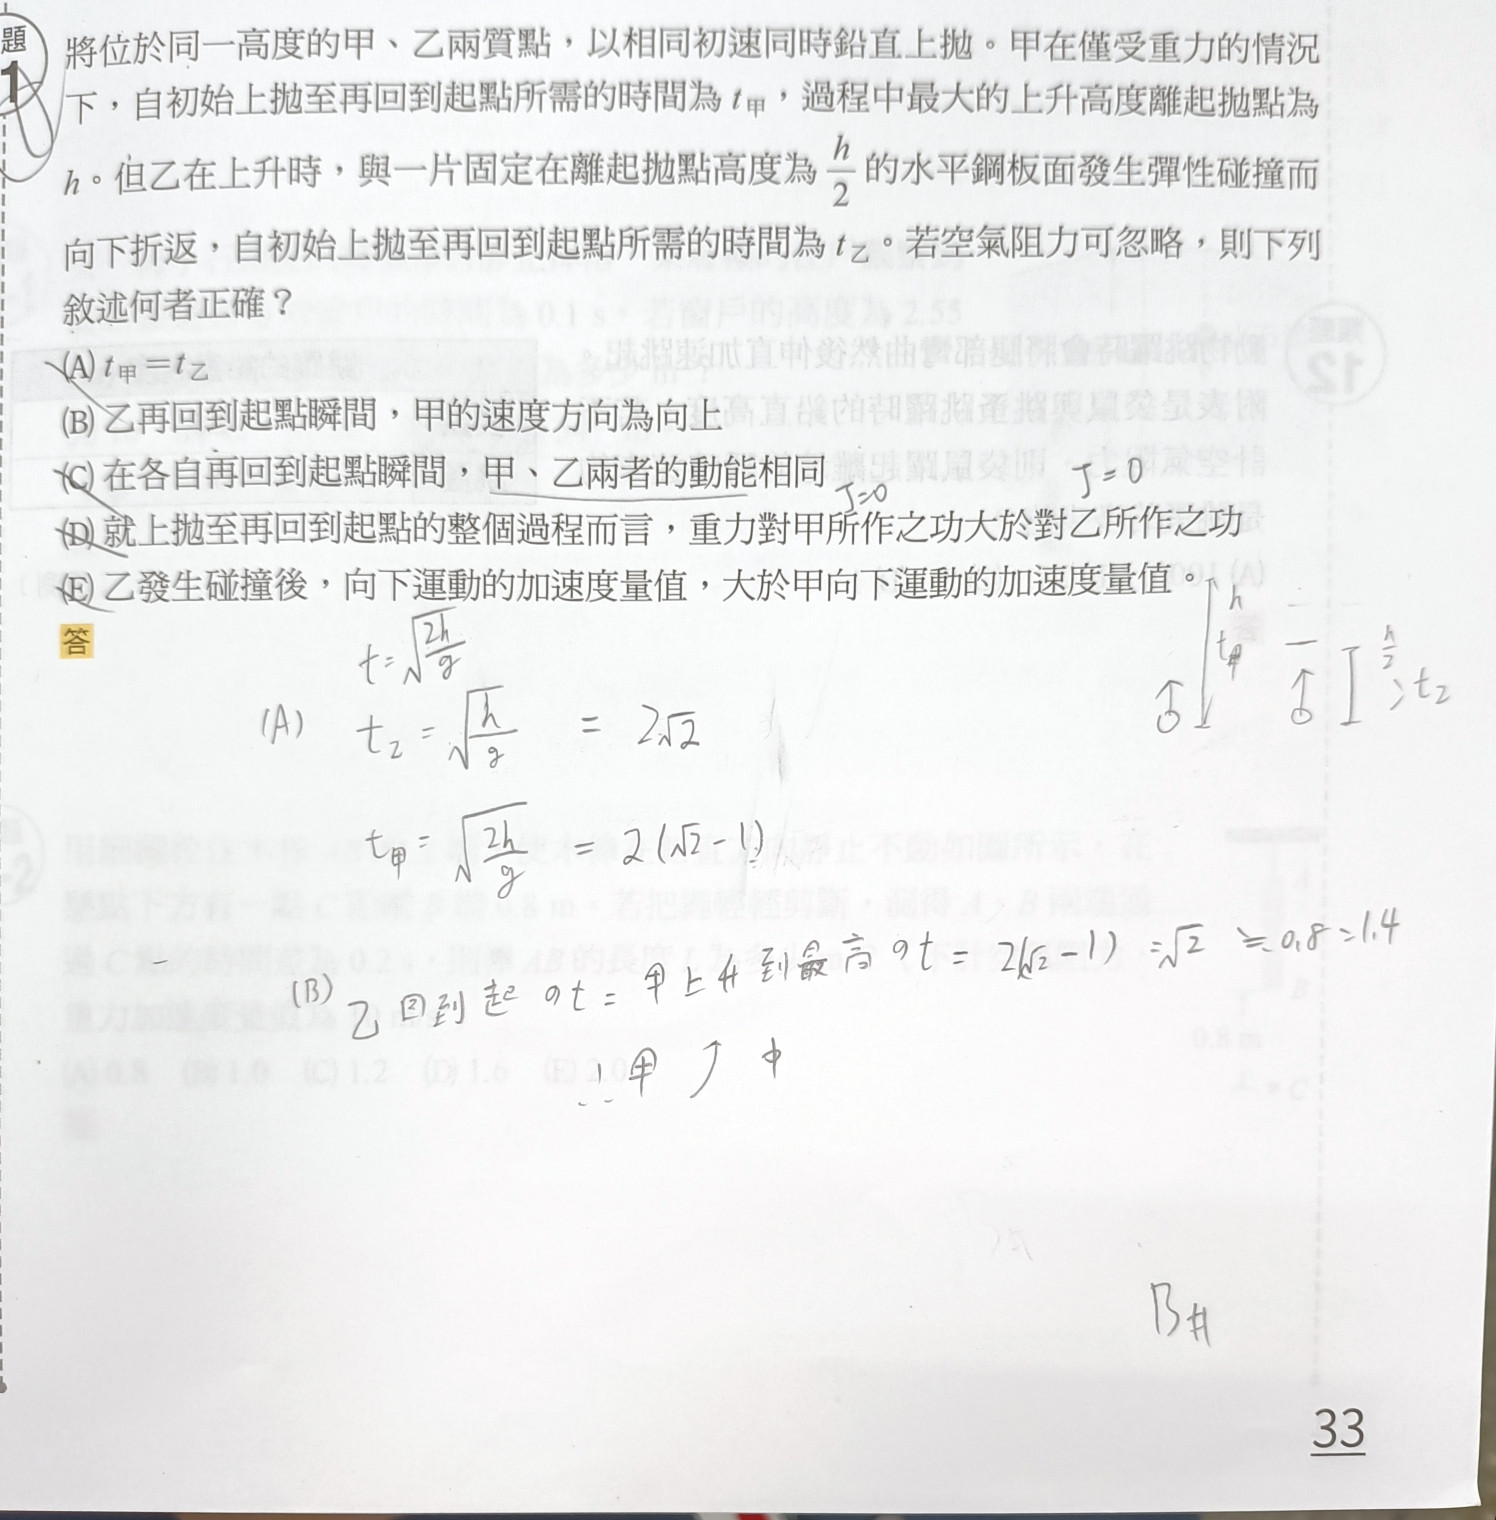 題
1
將位於同一高度的甲、乙兩質點，以相同初速同時鉛直上拋。甲在僅受重力的情況
下，自初始上拋至再回到起點所需的時間為 t甲，過程中最大的上升高度離起拋點為
h。但乙在上升時，與一片固定在離起拋點高度為 h/2 的水平鋼板面發生彈性碰撞而
向下折返，自初始上拋至再回到起點所需的時間為 t乙。若空氣阻力可忽略，則下列
敘述何者正確？
(A) t甲＝t乙
(B) 乙再回到起點瞬間，甲的速度方向為向上
(C) 在各自再回到起點瞬間，甲、乙兩者的動能相同
J=0
J=0
(D) 就上拋至再回到起點的整個過程而言，重力對甲所作之功大於對乙所作之功
(E) 乙發生碰撞後，向下運動的加速度量值，大於甲向下運動的加速度量值。
答
h
t甲
h/2
t2
t=√(2h/g)
(A) t2=√(h/g) = 2√2
t甲=√(2h/g) = 2(√2-1)
(B) 乙回到起 at = 甲上升到最高 at = 2(√2-1) =√2 ≒ 0.8=1.4
∴甲↑中
B#
33